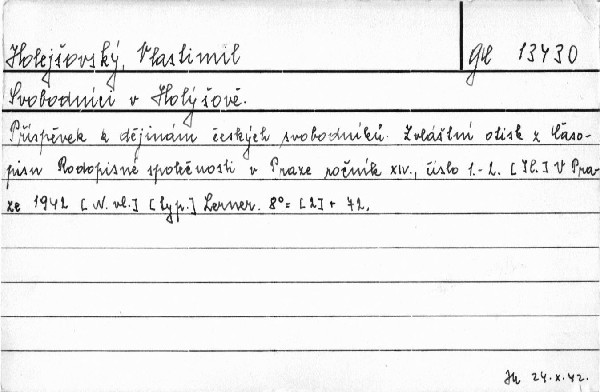 Holejšovský, Vlastimil
GH 13430
Svobodníci v Holýšově.
Příspěvek k dějinám českých svobodníků. Zvláštní otisk z Časo-
pisu Rodopisné společnosti v Praze ročník XIV., číslo 1.-2. [Il.] V Pra-
ze 1942 [N. vl.] [typ.] Lerner. 8°= [2] + 72.
24.X.42.